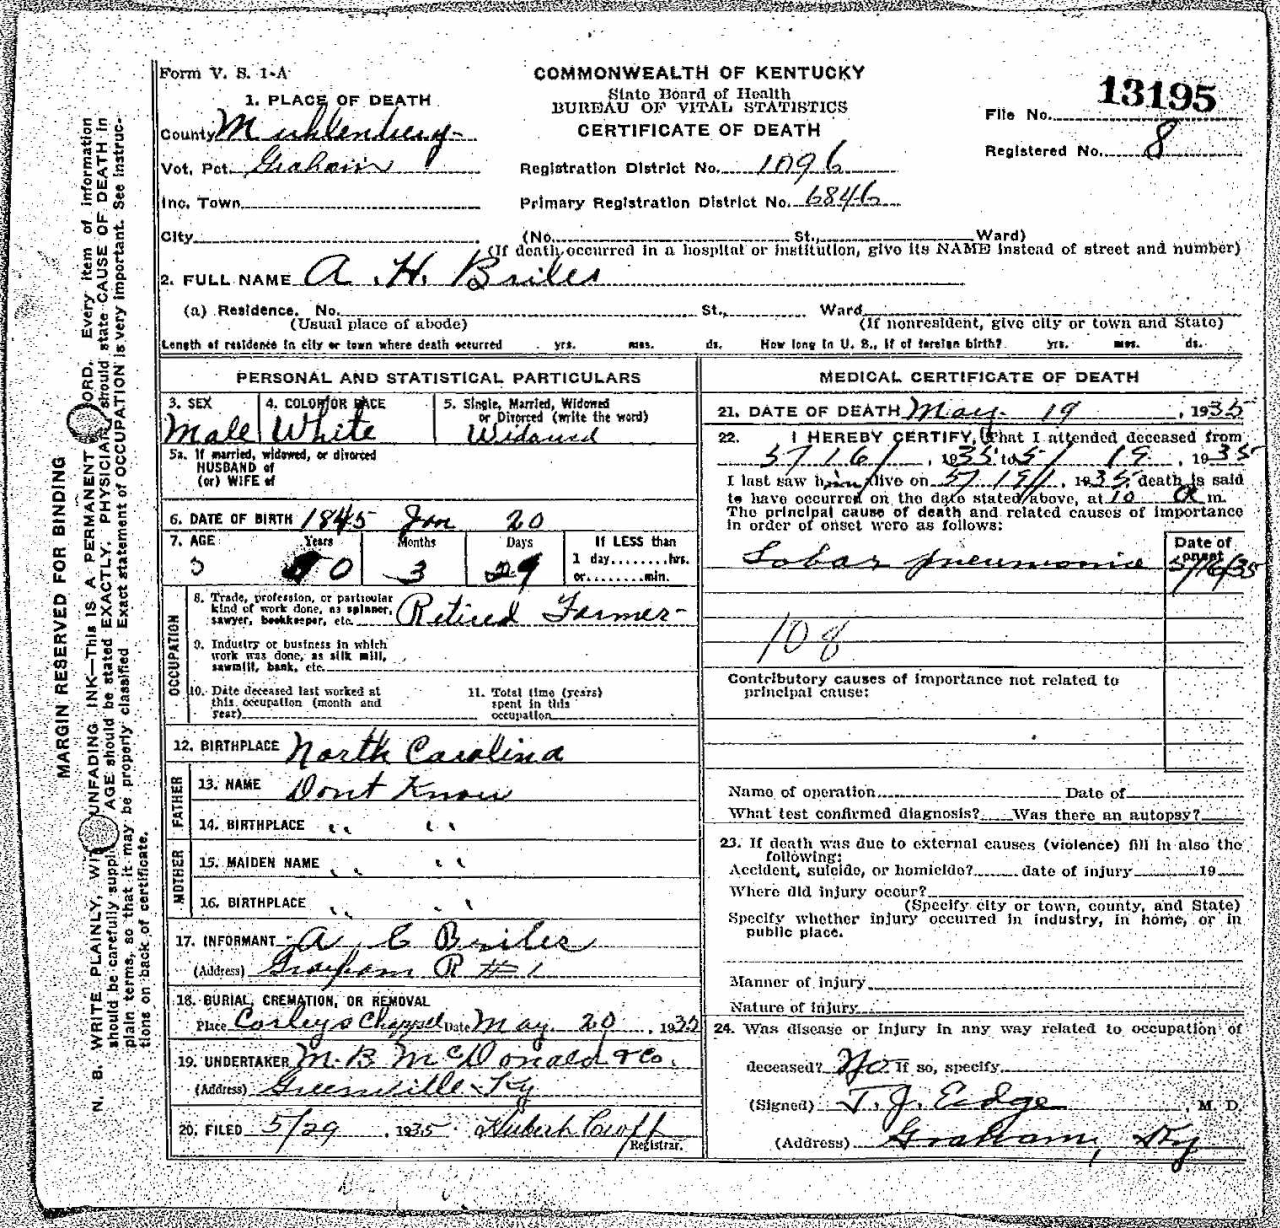 Form V. S. 1-A
COMMONWEALTH OF KENTUCKY
State Board of Health
BUREAU OF VITAL STATISTICS
CERTIFICATE OF DEATH
File No. 13195
Registered No. 8
1. PLACE OF DEATH
County Muhlenberg
Vot. Pct. Graham
Registration District No. 1096
Inc. Town
Primary Registration District No. 6846
City (No. St., Ward)
(If death occurred in a hospital or institution, give its NAME instead of street and number)
2. FULL NAME A. H. Briles
(a) Residence. No. St., Ward
(Usual place of abode) (If nonresident, give city or town and State)
Length of residence in city or town where death occurred yrs. mos. ds. How long in U. S., if of foreign birth? yrs. mos. ds.
PERSONAL AND STATISTICAL PARTICULARS
3. SEX 4. COLOR OR RACE 5. Single, Married, Widowed
or Divorced (write the word)
Male White Widowed
5a. If married, widowed, or divorced
HUSBAND of
(or) WIFE of
6. DATE OF BIRTH 1845 Jan 20
7. AGE Years Months Days If LESS than
1 day........hrs.
or........min.
0 3 29
OCCUPATION
8. Trade, profession, or particular
kind of work done, as spinner,
sawyer, bookkeeper, etc. Retired Farmer-
9. Industry or business in which
work was done, as silk mill,
sawmill, bank, etc.
10. Date deceased last worked at
this occupation (month and
year)
11. Total time (years)
spent in this
occupation
12. BIRTHPLACE North Carolina
FATHER
13. NAME Dont Know
14. BIRTHPLACE " "
MOTHER
15. MAIDEN NAME " "
16. BIRTHPLACE " "
17. INFORMANT A C Briles
(Address) Graham R #1
18. BURIAL, CREMATION, OR REMOVAL
Place Corleys Chappel Date May. 20, 1935
19. UNDERTAKER M. B. McDonald & Co.
(Address) Greenville Ky
20. FILED 5/29, 1935. Hubert Croft
Registrar.
MEDICAL CERTIFICATE OF DEATH
21. DATE OF DEATH May- 19, 1935
22. I HEREBY CERTIFY, That I attended deceased from
5/16/, 1935 to 5/ 19, 1935
I last saw him alive on 5/19/, 1935, death is said
to have occurred on the date stated above, at 10 a m.
The principal cause of death and related causes of importance
in order of onset were as follows:
Date of
onset
Lobar pneumonia 5/16/35
108
Contributory causes of importance not related to
principal cause:
Name of operation Date of
What test confirmed diagnosis? Was there an autopsy?
23. If death was due to external causes (violence) fill in also the
following:
Accident, suicide, or homicide? date of injury 19
Where did injury occur?
(Specify city or town, county, and State)
Specify whether injury occurred in industry, in home, or in
public place.
Manner of injury
Nature of injury
24. Was disease or injury in any way related to occupation of
deceased? No. If so, specify
(Signed) T. J. Edge, M. D.
(Address) Graham, Ky
MARGIN RESERVED FOR BINDING
N. B. WRITE PLAINLY, WITH UNFADING INK—THIS IS A PERMANENT RECORD. Every item of information
should be carefully supplied. AGE should be stated EXACTLY. PHYSICIANS should state CAUSE OF DEATH in
plain terms, so that it may be properly classified. Exact statement of OCCUPATION is very important. See instruc-
tions on back of certificate.